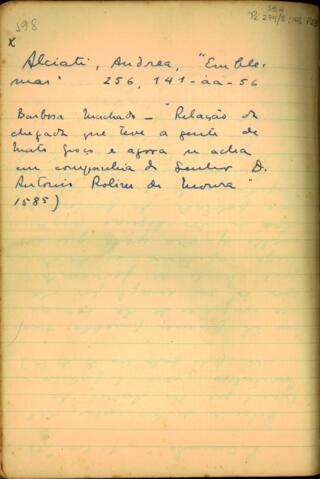 598
x
Alciati, Andrea, "Emble-
mas" 256, 141-aa-56
Barbosa Machado - "Relação da
chegada que teve a gente de
Mato Groço e agora se acha
em companhia do Senhor D.
Antonio Rolim de Moura"
1585)